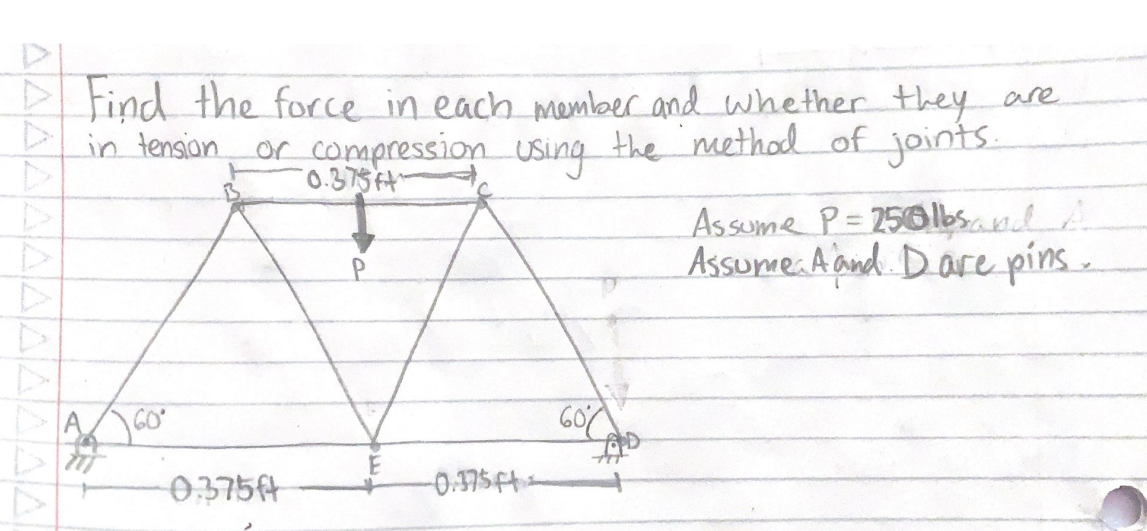 Find the force in each member and whether they are
in tension or compression using the method of joints.
0.375ft
B C
Assume P = 250lbs and A
P
Assume A and D are pins.
A 60° 60° D
E
0.375ft 0.375ft